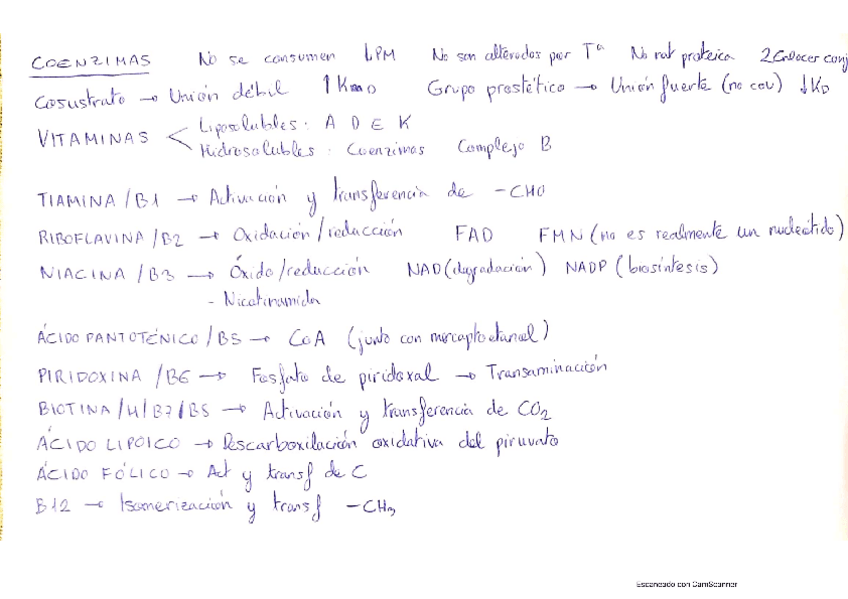 COENZIMAS No se consumen ↓PM No son alterados por Tª No nat proteica
Cosustrato → Unión débil ↑Km Grupo prostético → Unión fuerte (no cov) ↓KD
VITAMINAS < Liposolubles: A D E K
Hidrosolubles: Coenzimas Complejo B
TIAMINA/B1 → Activación y transferencia de -CHO
RIBOFLAVINA/B2 → Oxidación/reducción FAD FMN (no es realmente un nucleótido)
NIACINA/B3 → Óxido/reducción NAD (degradación) NADP (biosíntesis)
- Nicotinamida
ÁCIDO PANTOTÉNICO/B5 → CoA (junto con mercaptoetanol)
PIRIDOXINA/B6 → Fosfato de piridoxal → Transaminación
BIOTINA/H/B7/B8 → Activación y transferencia de CO2
ÁCIDO LIPOICO → Descarboxilación oxidativa del piruvato
ÁCIDO FÓLICO → Act y transf de C
B12 → Isomerización y transf -CH3
Escaneado con CamScanner